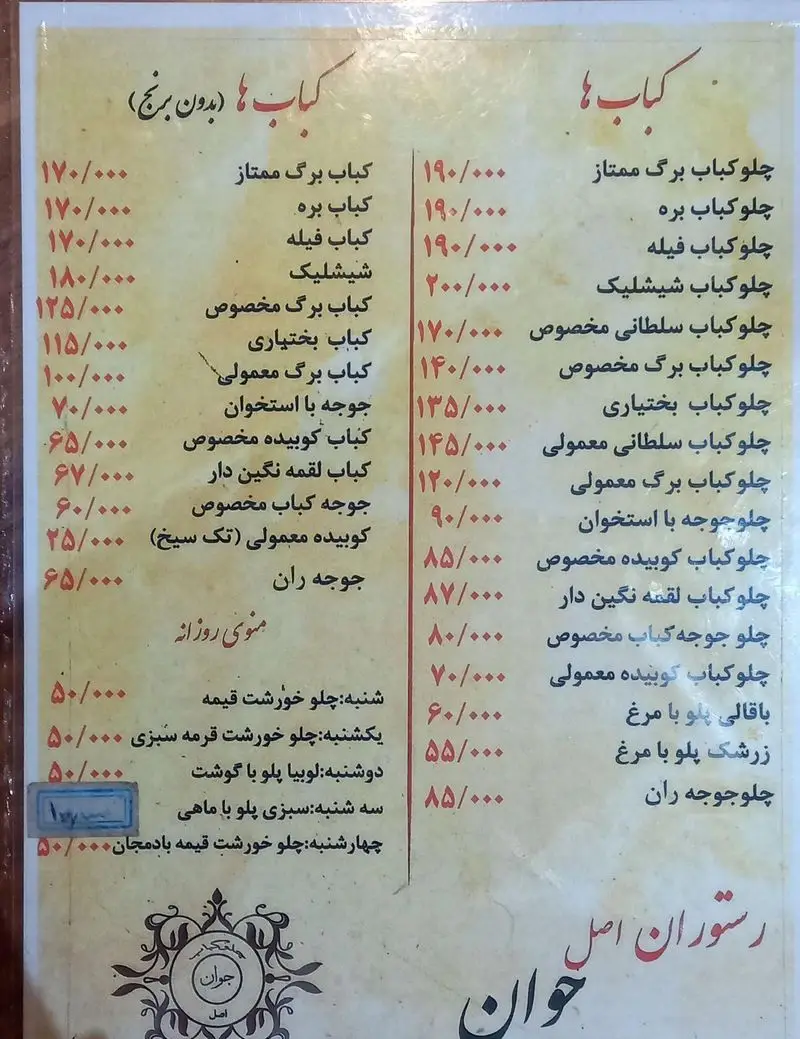 کباب ها
چلوکباب برگ ممتاز ۱۹۰/۰۰۰
چلوکباب بره ۱۹۰/۰۰۰
چلوکباب فیله ۱۹۰/۰۰۰
چلوکباب شیشلیک ۲۰۰/۰۰۰
چلوکباب سلطانی مخصوص ۱۷۰/۰۰۰
چلوکباب برگ مخصوص ۱۴۰/۰۰۰
چلوکباب بختیاری ۱۳۵/۰۰۰
چلوکباب سلطانی معمولی ۱۴۵/۰۰۰
چلوکباب برگ معمولی ۱۲۰/۰۰۰
چلوجوجه با استخوان ۹۰/۰۰۰
چلوکباب کوبیده مخصوص ۸۵/۰۰۰
چلوکباب لقمه نگین دار ۸۷/۰۰۰
چلو جوجه کباب مخصوص ۸۰/۰۰۰
چلوکباب کوبیده معمولی ۷۰/۰۰۰
باقالی پلو با مرغ ۶۰/۰۰۰
زرشک پلو با مرغ ۵۵/۰۰۰
چلوجوجه ران ۸۵/۰۰۰
کباب ها (بدون برنج)
کباب برگ ممتاز ۱۷۰/۰۰۰
کباب بره ۱۷۰/۰۰۰
کباب فیله ۱۷۰/۰۰۰
شیشلیک ۱۸۰/۰۰۰
کباب برگ مخصوص ۱۲۵/۰۰۰
کباب بختیاری ۱۱۵/۰۰۰
کباب برگ معمولی ۱۰۰/۰۰۰
جوجه با استخوان ۷۰/۰۰۰
کباب کوبیده مخصوص ۶۵/۰۰۰
کباب لقمه نگین دار ۶۷/۰۰۰
جوجه کباب مخصوص ۶۰/۰۰۰
کوبیده معمولی (تک سیخ) ۲۵/۰۰۰
جوجه ران ۶۵/۰۰۰
منوی روزانه
شنبه:چلو خورشت قیمه ۵۰/۰۰۰
یکشنبه:چلو خورشت قرمه سبزی ۵۰/۰۰۰
دوشنبه:لوبیا پلو با گوشت ۵۰/۰۰۰
سه شنبه:سبزی پلو با ماهی
چهارشنبه:چلو خورشت قیمه بادمجان ۵۰/۰۰۰
رستوران اصل
جوان
چلوکباب
جوان
اصل